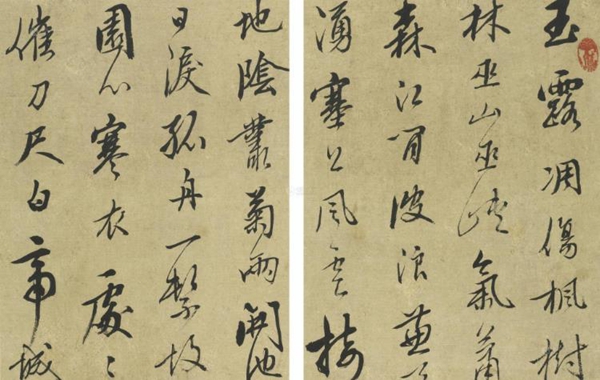 玉露凋傷楓樹
林巫山巫峽氣蕭
森江間波浪兼天
湧塞上風雲接
地陰叢菊兩開他
日淚孤舟一繫故
園心寒衣處〻
催刀尺白帝城